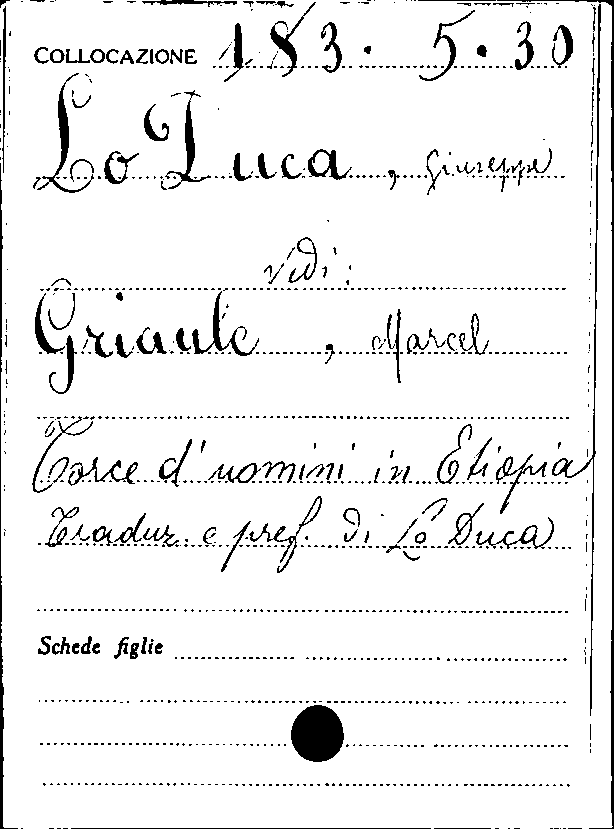 COLLOCAZIONE 183. 5. 30
Lo Duca, Giuseppe
vedi:
Griaule, Marcel
Torce d'uomini in Etiopia
Traduz. e pref. di Lo Duca
Schede figlie